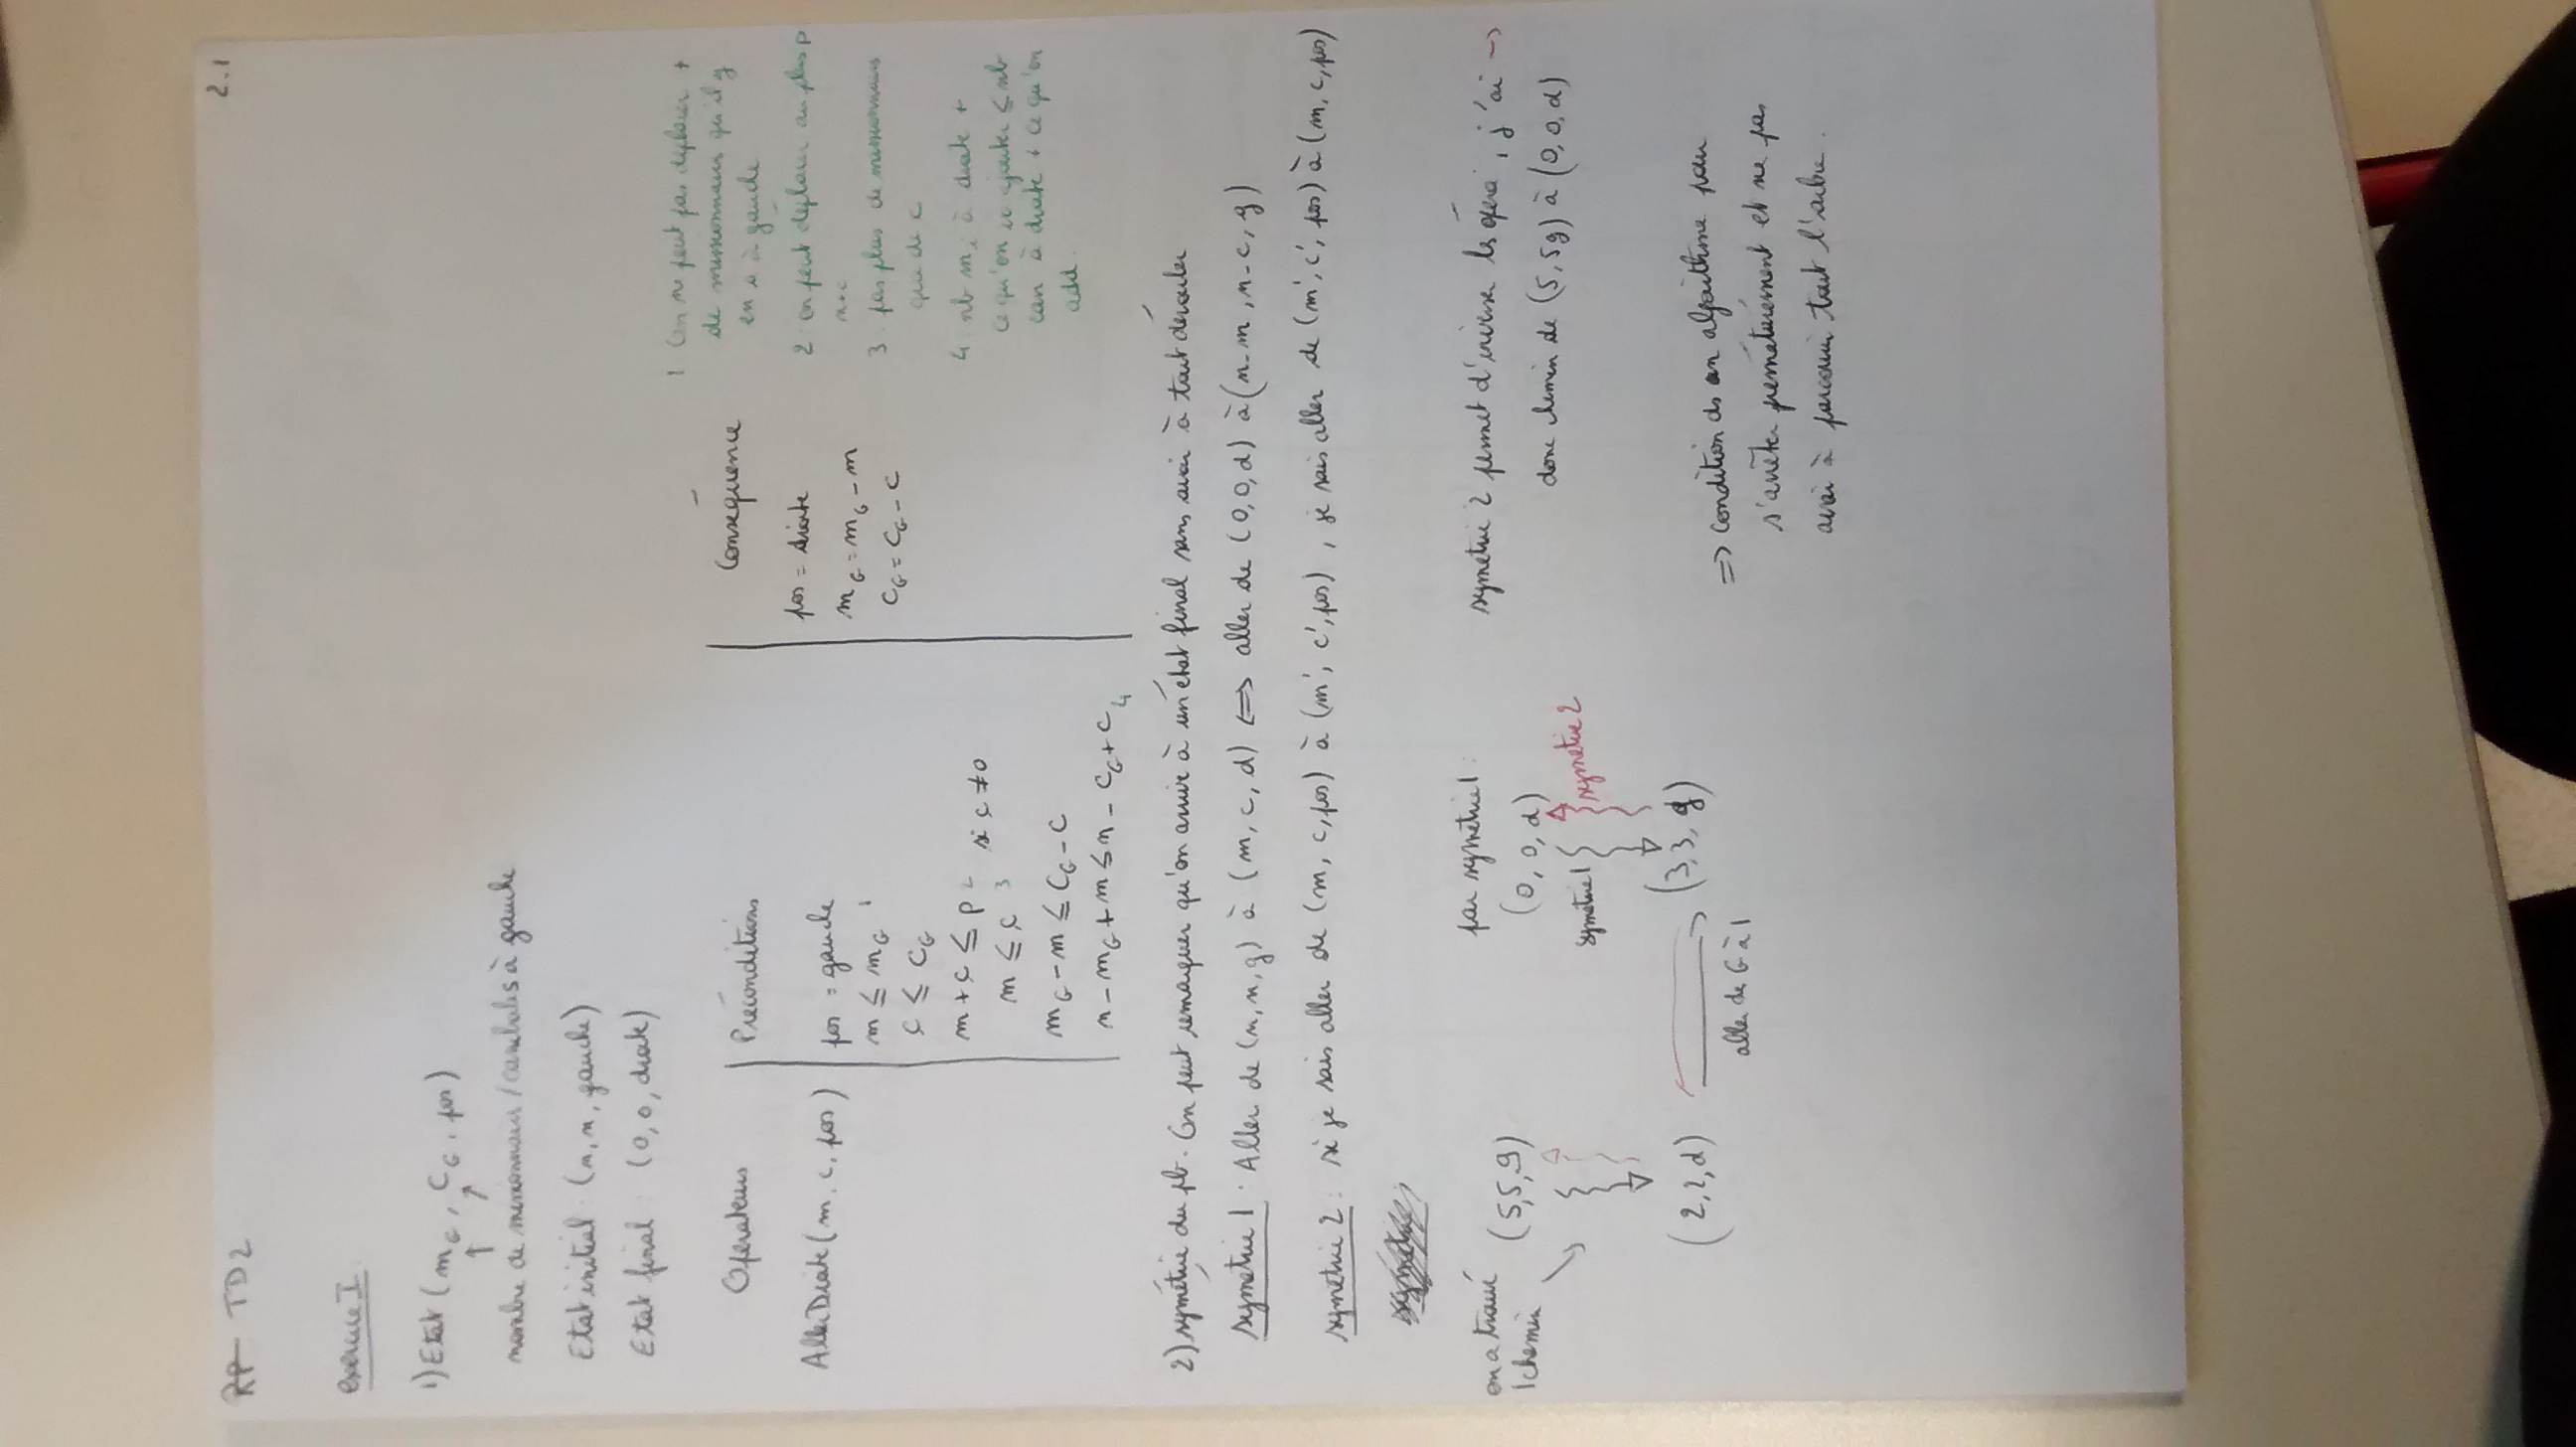 RP - TD2
2.1
exercice I
1) Etat (mG, cG, pos)
nombre de missionnaires/cannibales à gauche
Etat initial : (n, n, gauche)
Etat final : (0, 0, droite)
Opérateurs
Préconditions
Conséquence
AllerDroite (m, c, pos)
pos = gauche
m ≤ mG 1
c ≤ cG
m + c ≤ P 2
m ≤ c 3 si c ≠ 0
mG - m ≤ cG - c
n - mG + m ≤ n - cG + c 4
pos = droite
mG = mG - m
cG = cG - c
1 On ne peut pas déplacer +
de missionnaires qu'il y
en a à gauche
2 : on peut déplacer au plus P
m+c
3 : pas plus de missionnaires
que de c
4 : nb mi à droite +
ce qu'on va ajouter ≤ nb
can à droite + ce qu'on
add.
2) symétrie du pb. On peut remarquer qu'on arrive à un état final sans avoir à tout dérouler
symétrie 1 : Aller de (n, n, g) à (m, c, d) <=> aller de (0, 0, d) à (n-m, n-c, g)
symétrie 2 : si je sais aller de (m, c, pos) à (m', c', pos), je sais aller de (m', c', pos) à (m, c, pos)
on a trouvé
1 chemin
(5,5,g)
(2,2,d)
aller de G à 1
par symétrie 1 :
(0, 0, d)
symétrie 1
symétrie 2
(3,3, g)
symétrie 2 permet d'inverse les opéra, j'ai ->
donc chemin de (5,5g) à (0,0,d)
=> condition ds un algorithme pour
s'arrêter prématurément et ne pas
avoir à parcourir tout l'arbre.